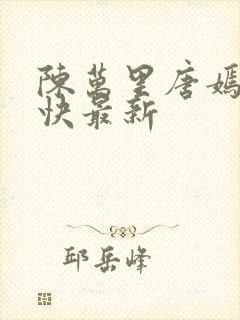 陳萬里唐嫣
快最新
邱岳峰